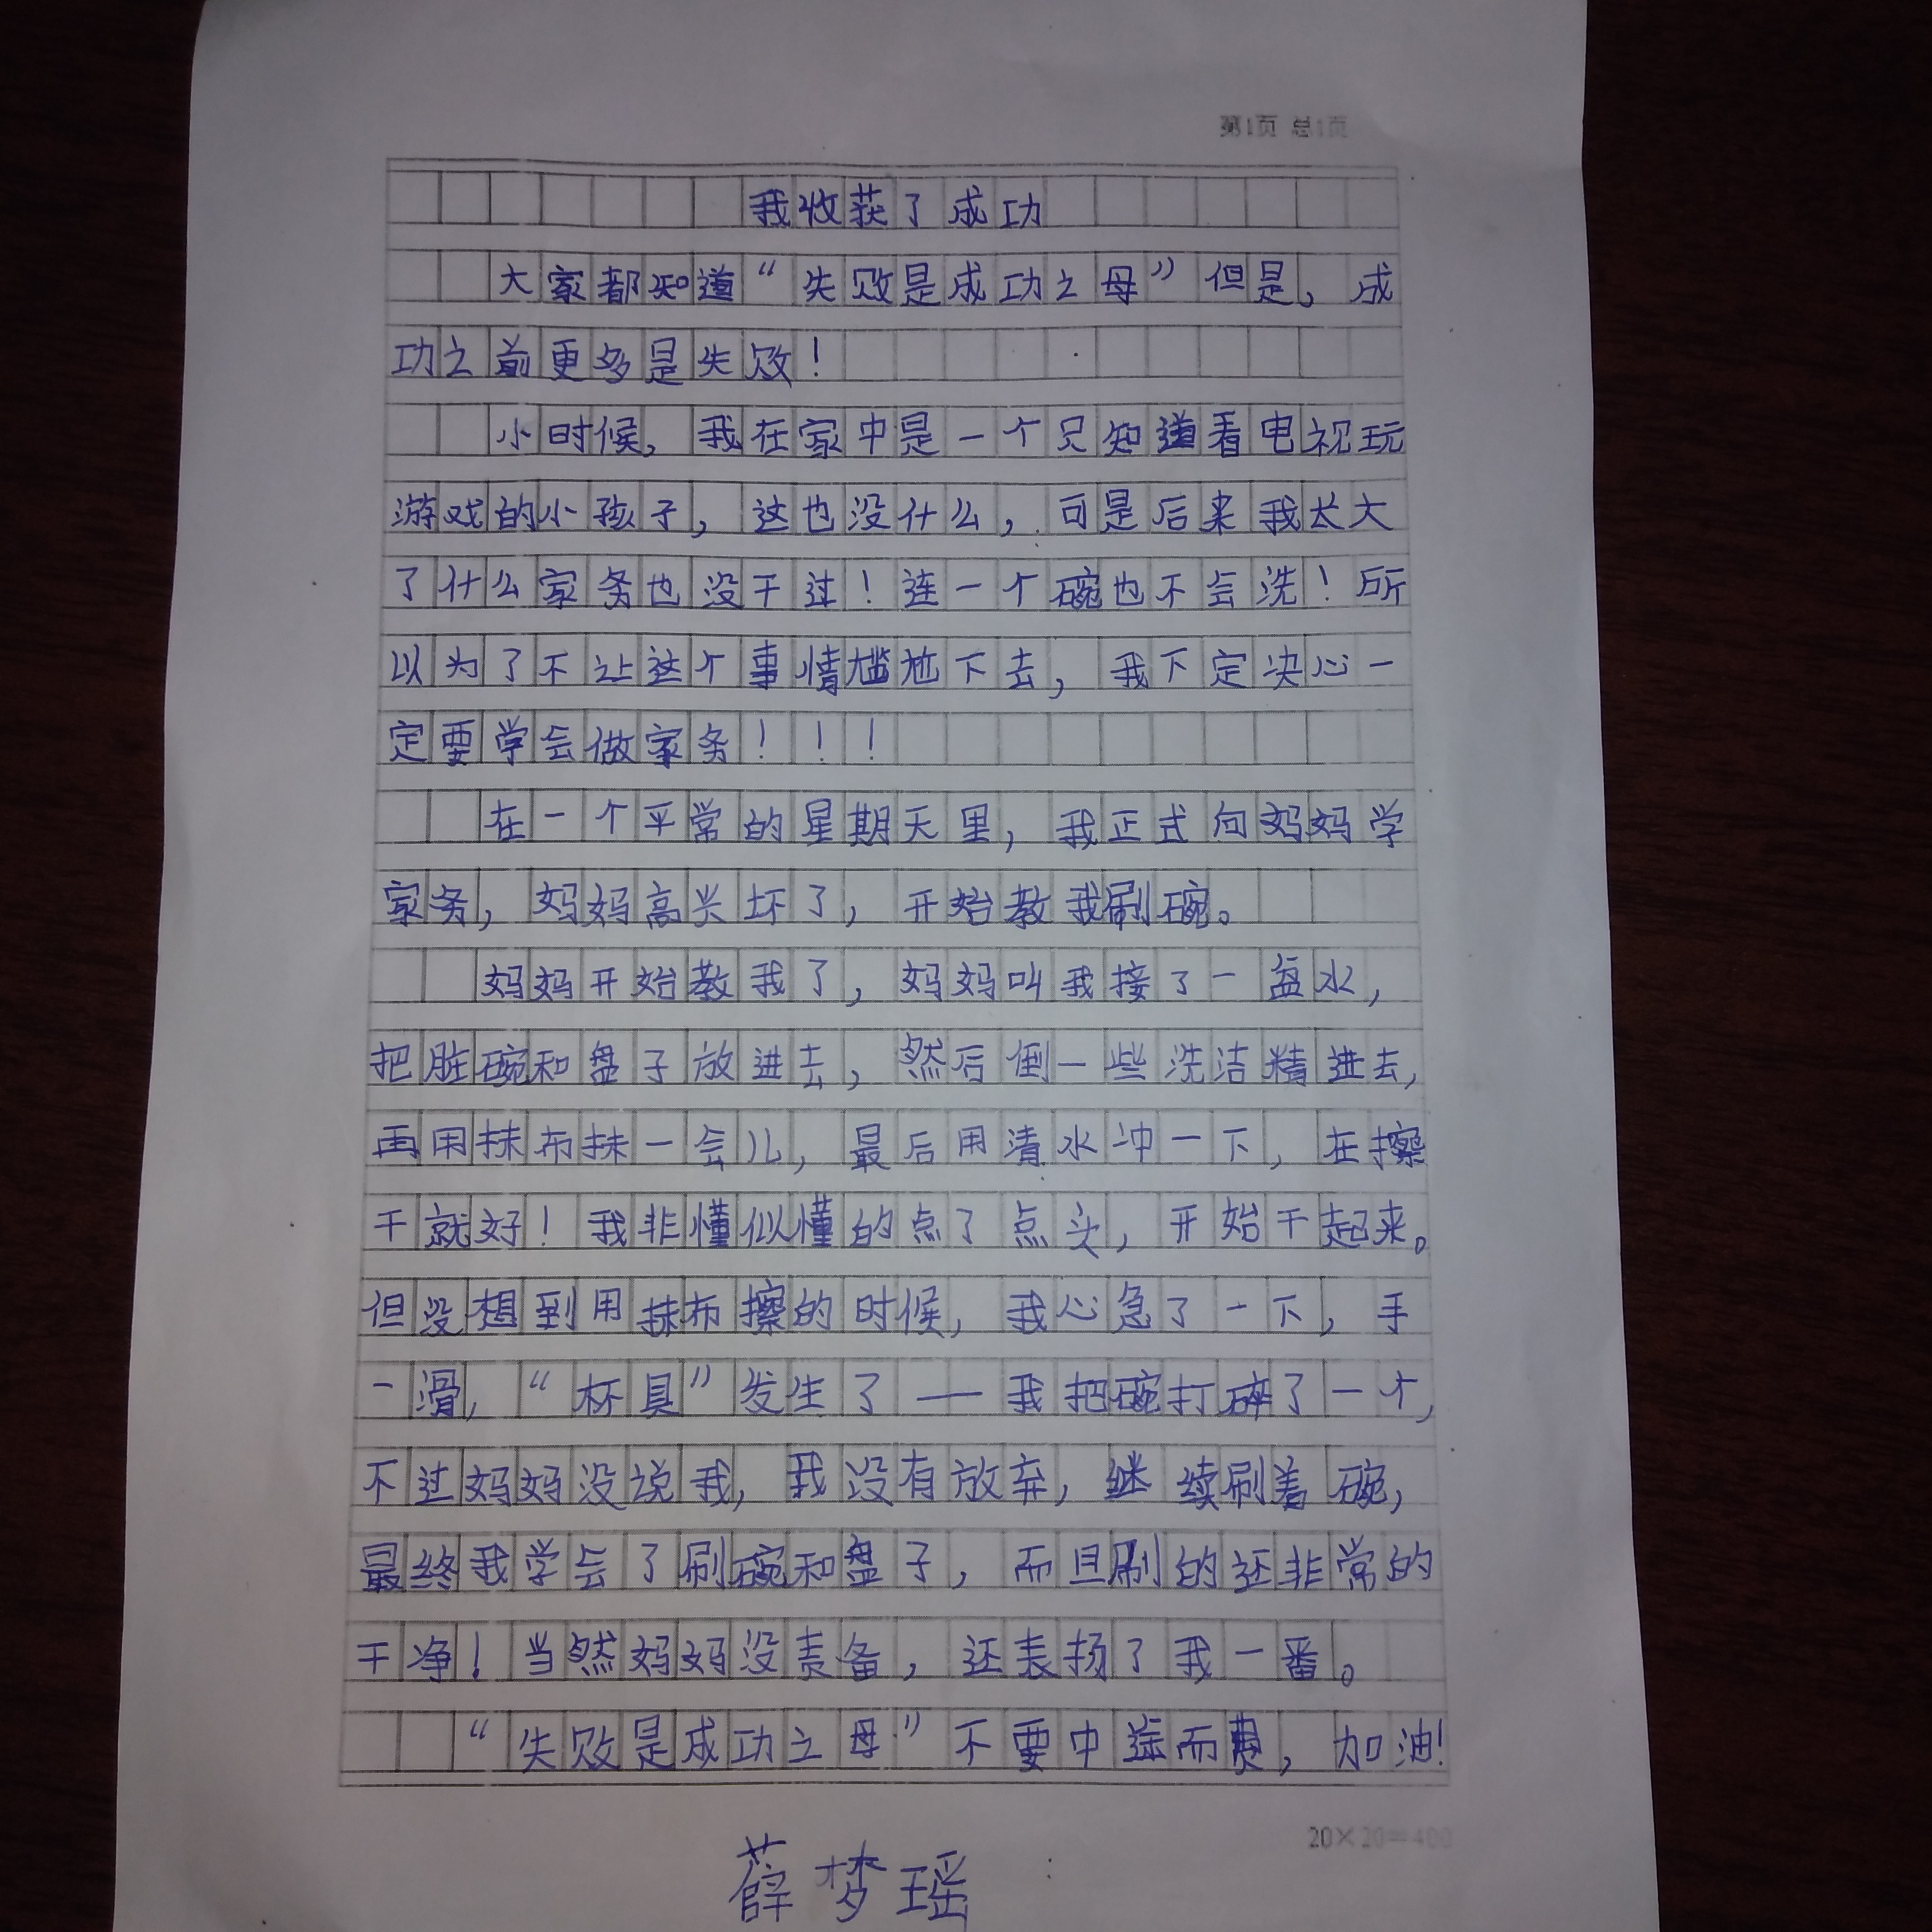 第1页 总1页
我收获了成功
大家都知道“失败是成功之母”但是，成
功之前更多是失败！
小时候，我在家中是一个只知道看电视玩
游戏的小孩子，这也没什么，可是后来我长大
了什么家务也没干过！连一个碗也不会洗！所
以为了不让这个事情尴尬下去，我下定决心一
定要学会做家务！！！
在一个平常的星期天里，我正式向妈妈学
家务，妈妈高兴坏了，开始教我刷碗。
妈妈开始教我了，妈妈叫我接了一盆水，
把脏碗和盘子放进去，然后倒一些洗洁精进去，
再用抹布抹一会儿，最后用清水冲一下，在擦
干就好！我非懂似懂的点了点头，开始干起来。
但没想到用抹布擦的时候，我心急了一下，手
一滑，“杯具”发生了——我把碗打碎了一个，
不过妈妈没说我，我没有放弃，继续刷着碗，
最终我学会了刷碗和盘子，而且刷的还非常的
干净！当然妈妈没责备，还表扬了我一番。
“失败是成功之母”不要中途而费，加油！
20×20=400
薛梦瑶